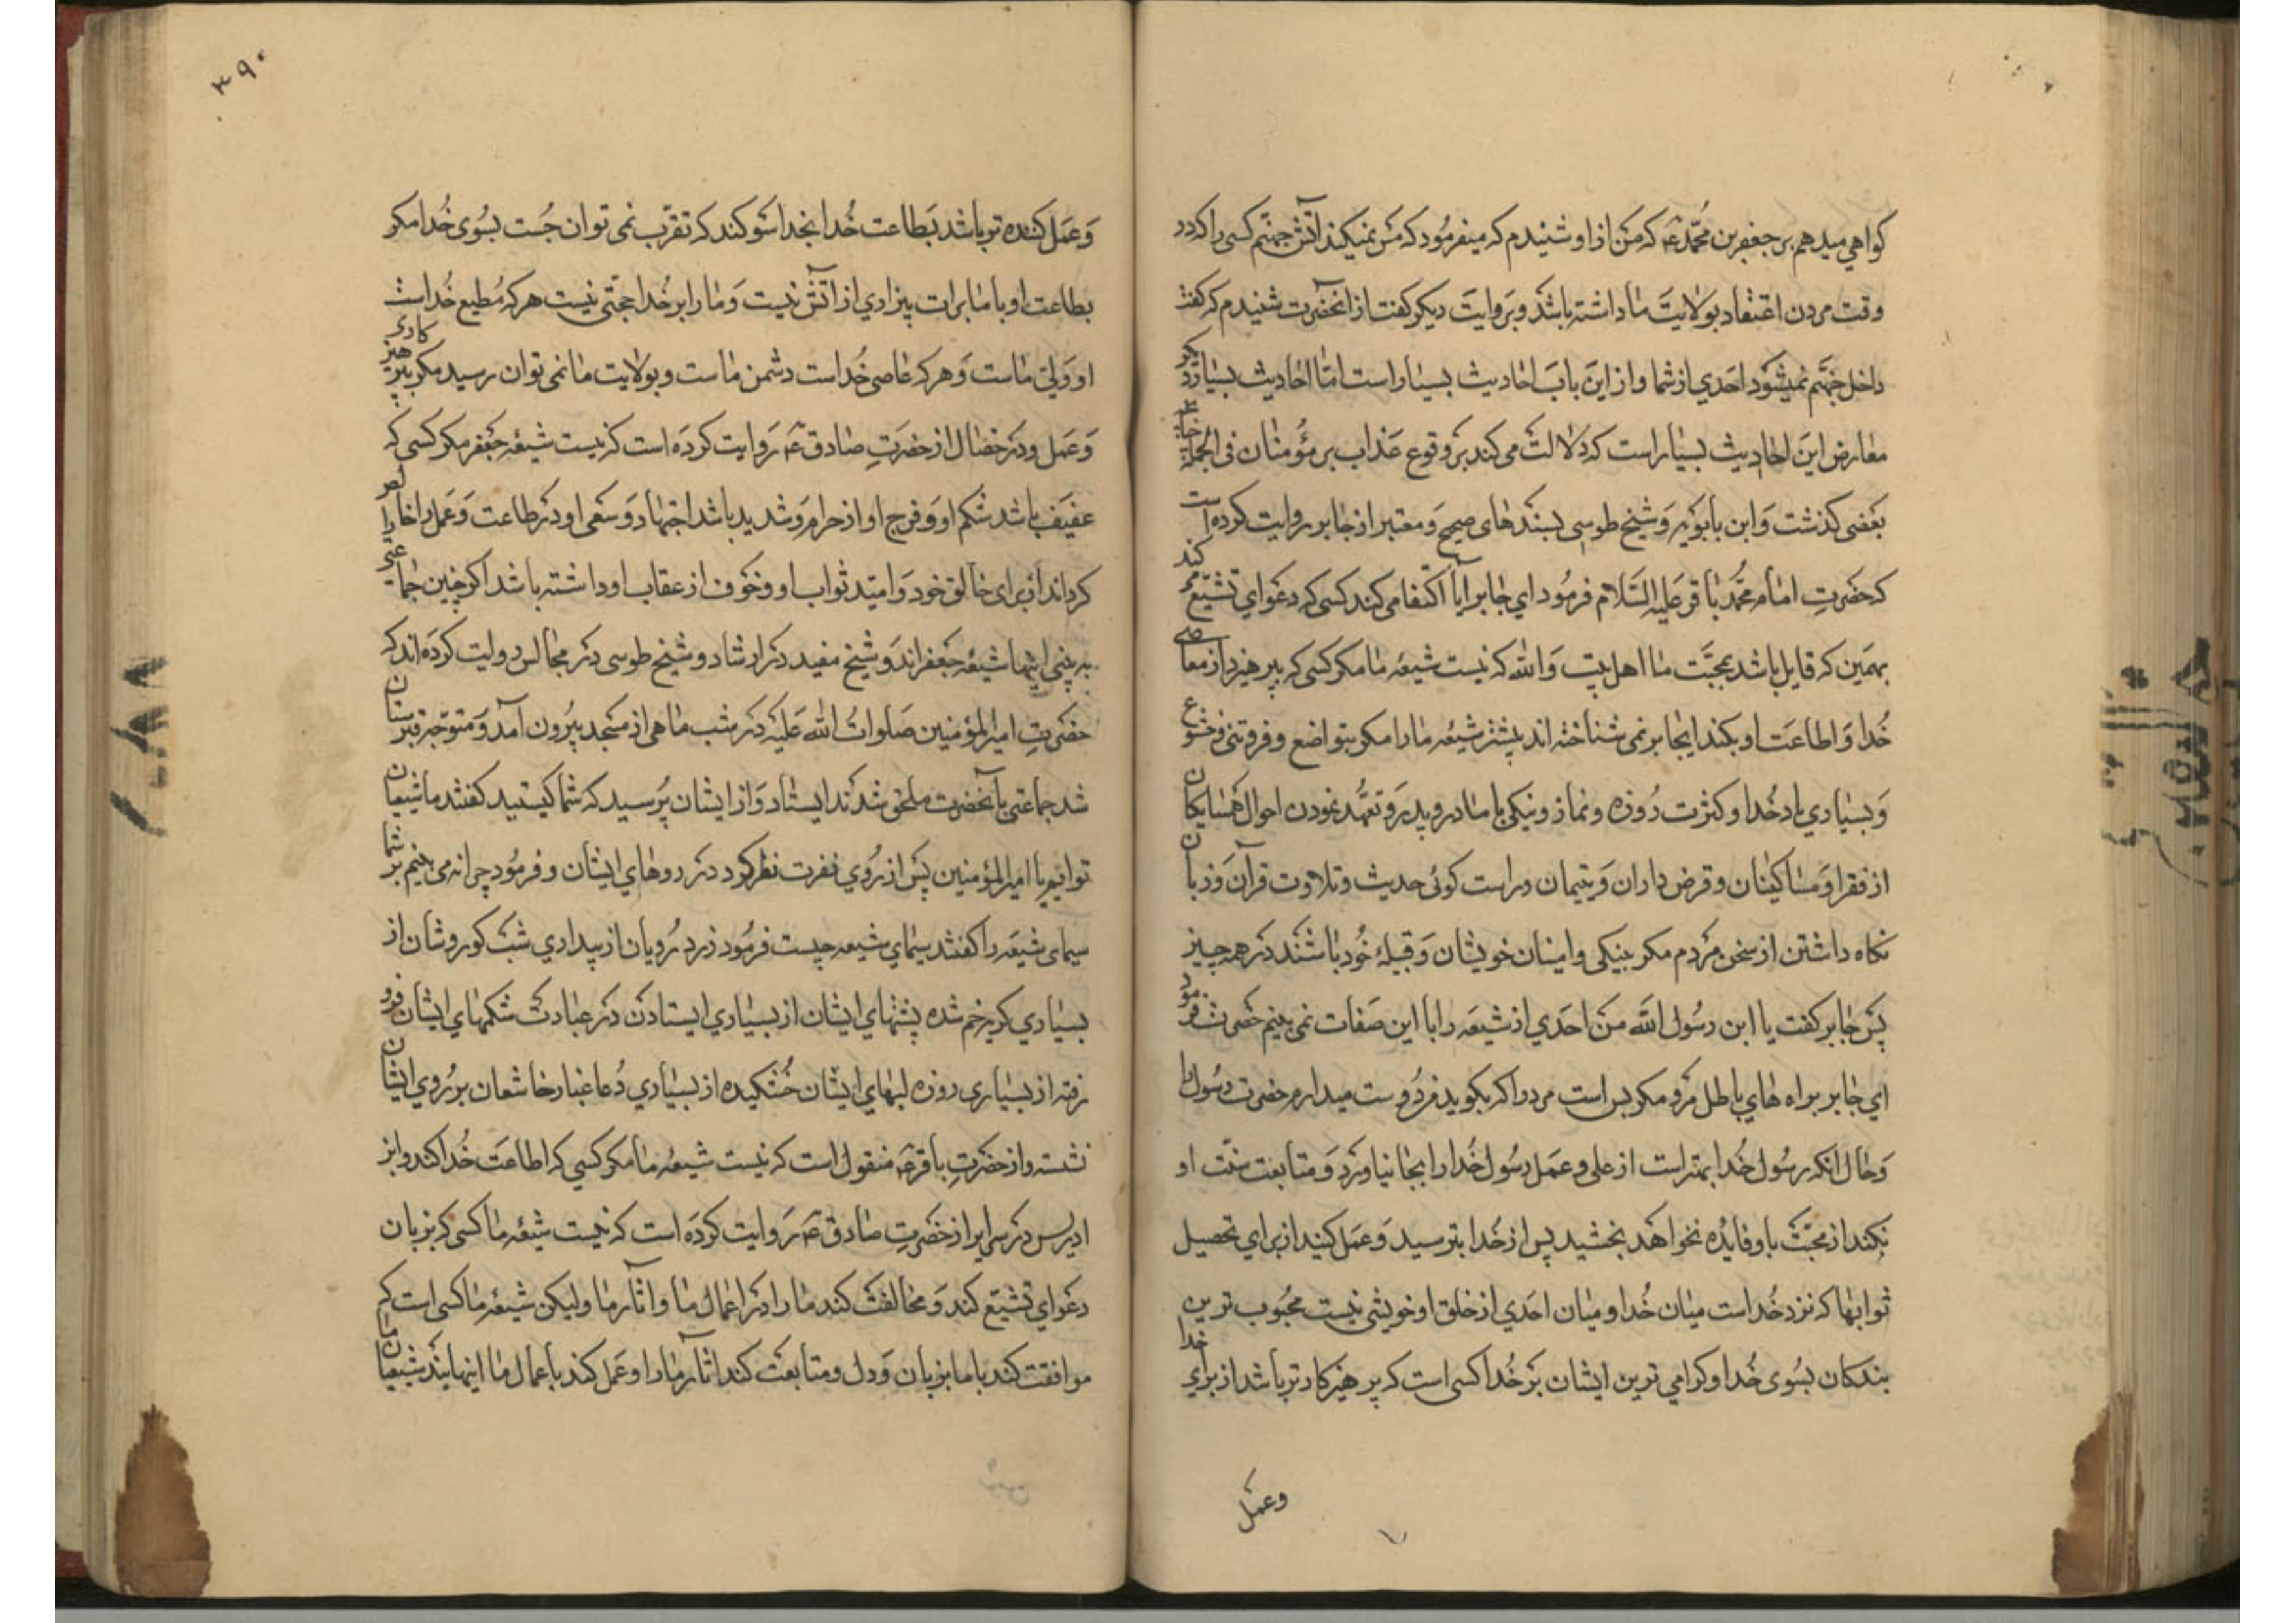 کواهی میدهم بر جعفر بن محمد ع که من از او شنیدم که میفرمود که مس نمیکند آتش جهنم کسی را که در
وقت مردن اعتقاد بولایت ما داشته باشد و بروایت دیکر کفت از آنحضرت شنیدم که کفت
داخل جهنم نمیشود احدی از شما و از این باب احادیث بسیار است اما احادیث بسیار دیکر
معارض این احادیث بسیار است که دلالت می کند بر وقوع عذاب بر مؤمنان فی الجمله چنانچه
بعضی کذشت و ابن بابویه و شیخ طوسی بسندهای صحیح و معتبر از جابر روایت کرده است
که حضرت امام محمد باقر علیه السلام فرمود ای جابر آیا اکتفا می کند کسی که دعوای تشیع کند
بهمین که قایل باشد بمحبت ما اهل بیت و الله که نیست شیعه ما مکر کسی که بپرهیزد از معاصی
خدا و اطاعت او بکند ای جابر نمی شناخته اند پیشتر شیعه ما را مکر بتواضع و فروتنی و خشوع
و بسیاری یاد خدا و کثرت روزه و نماز و نیکی با مادر و پدر و تعهد نمودن احوال همسایکان
از فقرا و مساکینان و قرض داران و یتیمان و راست کوئی حدیث و تلاوت قرآن و زبان
نکاه داشتن از سخن مردم مکر بنیکی و امینان خویشان و قبیله خود باشند در همه چیز
پس جابر کفت یا ابن رسول الله من احدی از شیعه را با این صفات نمی بینم حضرت فرمود
ای جابر براه های باطل مرو مکر بس است مرد را که بکوید فرد دوست میدارم حضرت رسول را
و حال آنکه رسول خدا بهتر است از علی و عمل رسول خدا را بجا نیاورد و متابعت سنت او
نکند از محبت باو فایده نخواهد بخشید پس از خدا بترسید و عمل کنید از برای تحصیل
ثوابها که نزد خداست میان خدا و میان احدی از خلق او خویشی نیست محبوب ترین
بندکان بسوی خدا و کرامی ترین ایشان بر خدا کسی است که پرهیزکارتر باشد از برای خدا
وعمل
۳۹۰
و عمل کننده تر باشد بطاعت خدا بخدا سوکند که تقرب نمی توان جست بسوی خدا مکر
بطاعت او با ما برات بیزاری از آتش نیست و ما را بر خدا حجتی نیست هر که مطیع خداست
او ولی ماست و هر که عاصی خداست دشمن ماست و بولایت ما نمی توان رسید مکر بپرهیزکاری
و عمل و در خصال از حضرت صادق ع روایت کرده است که نیست شیعه جعفر مکر کسی که
عفیف باشد شکم او و فرج او از حرام و شدید باشد اجتهاد و سعی او در طاعت و عمل را خالص
کرداند از برای خالق خود و امید ثواب او و خوف از عقاب او داشته باشد اکر چنین جماعتی را
به بینی اینها شیعه جعفر اند و شیخ مفید در ارشاد و شیخ طوسی در مجالس روایت کرده اند که
حضرت امیر المؤمنین صلوات الله علیه در شب ماهی از مسجد بیرون آمد و متوجه قبرستان
شد جماعتی بآنحضرت ملحق شدند ایستاد و از ایشان پرسید که شما کیستید کفتند ما شیعیان
توایم یا امیر المؤمنین پس از روی نفرت نظر کرد در روهای ایشان و فرمود چرا نه می بینم بر شما
سیمای شیعه را کفتند سیمای شیعه چیست فرمود زرد رویان از بیداری شب کور وشان از
بسیاری کریه خم شده پشتهای ایشان از بسیاری ایستادن در عبادت شکمهای ایشان فرو
رفته از بسیاری روزه لبهای ایشان خشکیده از بسیاری دعا غبار خاشعان بر روی ایشان
نشسته و از حضرت باقر ع منقول است که نیست شیعه ما مکر کسی که اطاعت خدا کند و ابن
ادریس در سرایر از حضرت صادق ع روایت کرده است که نیست شیعه ما کسی که بزبان
دعوای تشیع کند و مخالفت کند ما را در اعمال ما و آثار ما ولیکن شیعه ما کسی است که
موافقت کند با ما بزبان و دل و متابعت کند آثار ما را و عمل کند باعمال ما اینهایند شیعیان ما